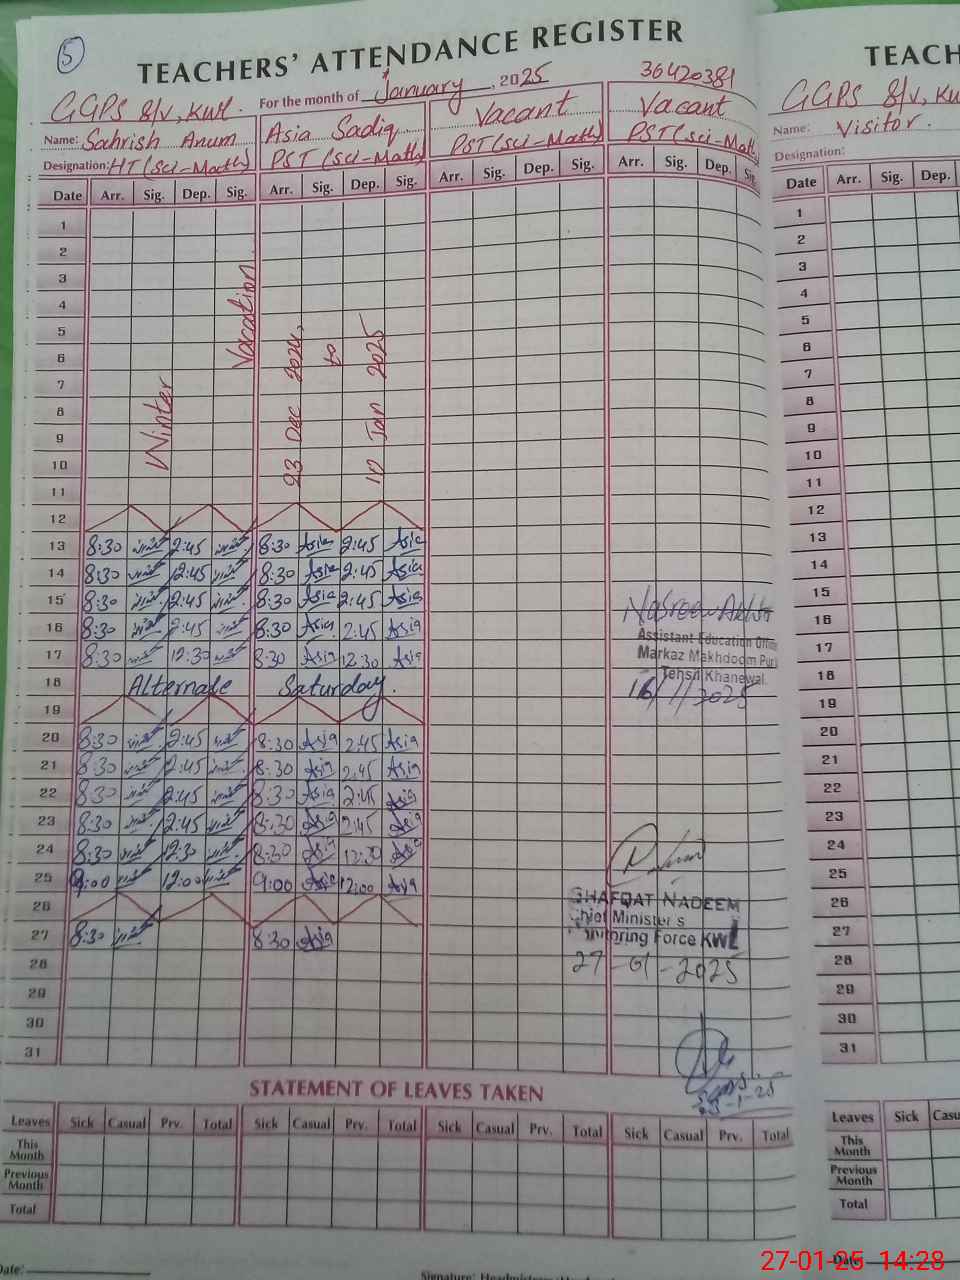 5
TEACHERS' ATTENDANCE REGISTER
GGPS 8/V, Kwl. For the month of January, 2025 36420381
Name: Sahrish Anum Asia Sadiq Vacant Vacant
Designation: HT (Sci-Math) PST (Sci-Math) PST (Sci-Math) PST (Sci-Math)
Date Arr. Sig. Dep. Sig. Arr. Sig. Dep. Sig. Arr. Sig. Dep. Sig. Arr. Sig. Dep. Sig.
1
2
3
4
5
6
7
8
9
10
11
Winter Vacation
23 Dec 2024, to 10 Jan 2025
12
13 8:30 2:45 8:30 Asia 2:45 Asia
14 8:30 2:45 8:30 Asia 2:45 Asia
15 8:30 2:45 8:30 Asia 2:45 Asia
16 8:30 2:45 8:30 Asia 2:45 Asia
17 8:30 12:30 8:30 Asia 12:30 Asia
18 Alternate Saturday.
19
20 8:30 2:45 8:30 Asia 2:45 Asia
21 8:30 2:45 8:30 Asia 2:45 Asia
22 8:30 2:45 8:30 Asia 2:45 Asia
23 8:30 2:45 8:30 Asia 2:45 Asia
24 8:30 12:30 8:30 Asia 12:30 Asia
25 9:00 12:00 9:00 Asia 12:00 Asia
26
27 8:30 8:30 Asia
28
29
30
31
Assistant Education
Markaz Makhdoom
Tehsil Khanewal.
16/1/2025
SHAFQAT NADEEM
Chief Minister's
Force KWL
27-01-2025
STATEMENT OF LEAVES TAKEN
Leaves Sick Casual Prv. Total Sick Casual Prv. Total Sick Casual Prv. Total Sick Casual Prv. Total
This Month
Previous Month
Total
Date:
Signature:
TEACH
GGPS 8/V,
Name: Visitor.
Designation:
Date Arr. Sig. Dep.
1
2
3
4
5
6
7
8
9
10
11
12
13
14
15
16
17
18
19
20
21
22
23
24
25
26
27
28
29
30
31
Leaves Sick
This Month
Previous Month
Total
Date:
27-01-25 14:28